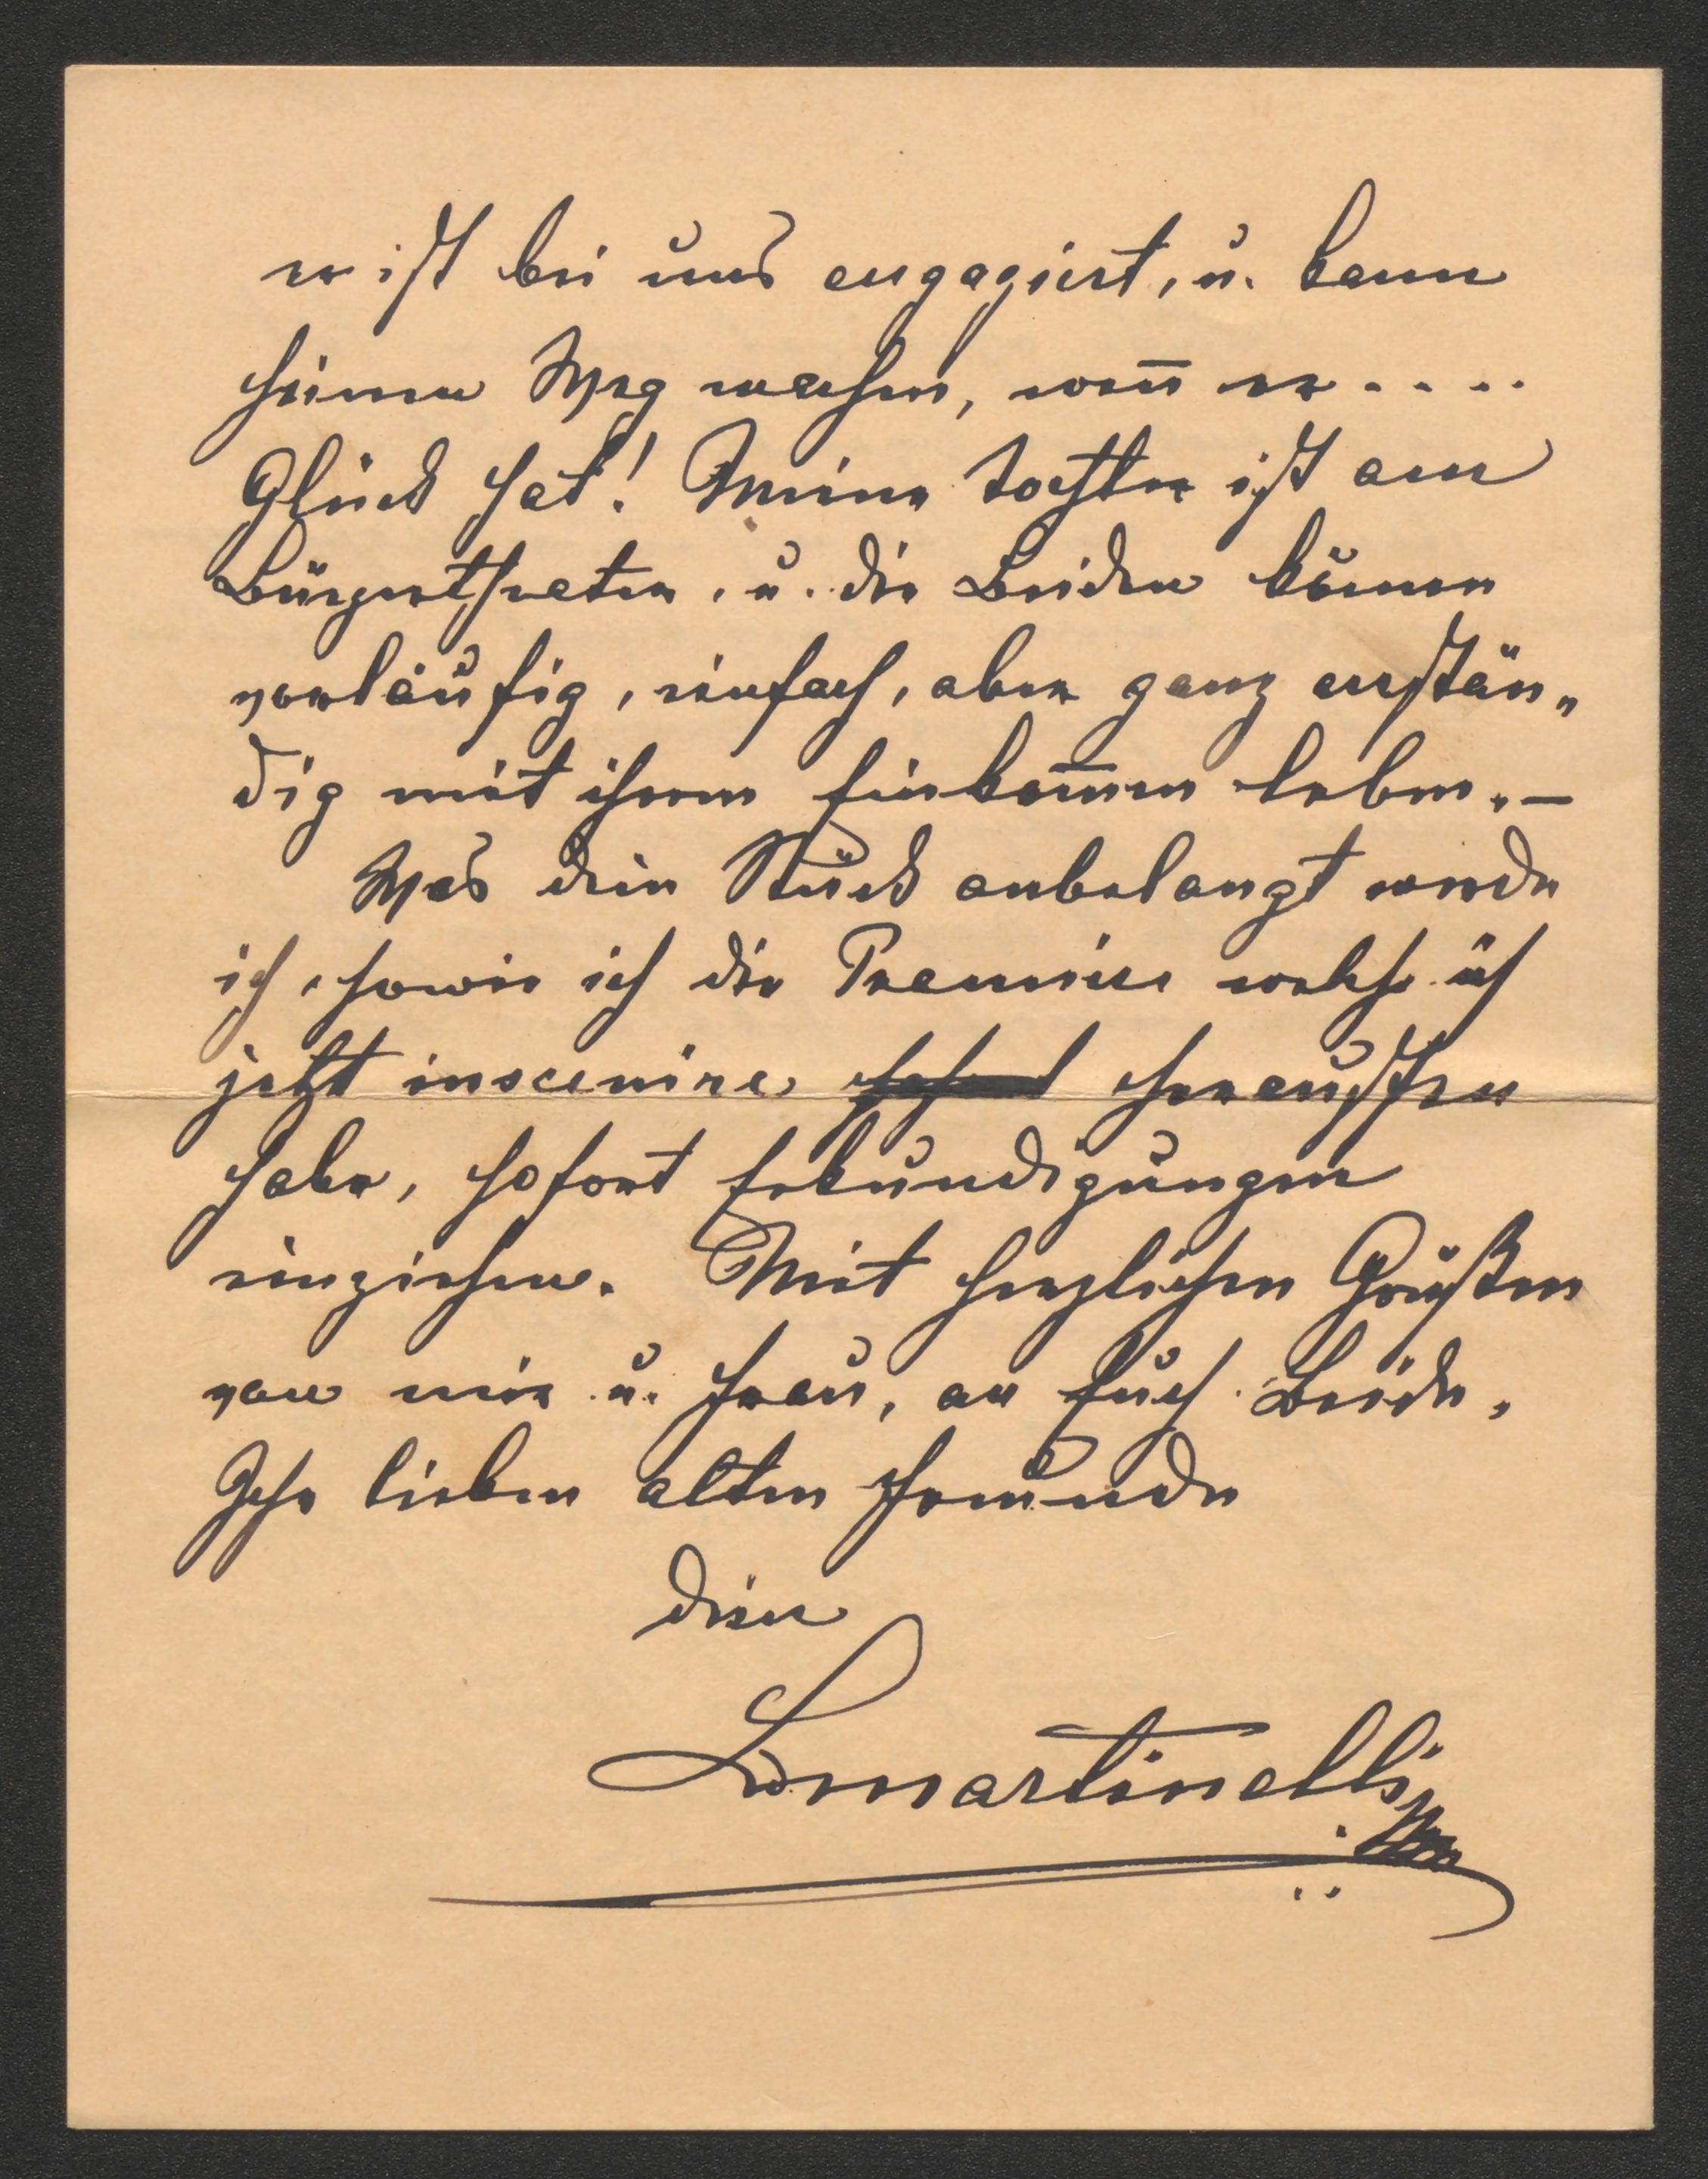 er ist bei uns engagiert, u. kann
seinen Weg machen, weñ er . . . .
Glück hat! Meine Tochter ist am
Bürgertheater, u. die Beiden können
vorläufig, einfach, aber ganz anstän„
dig mit ihrem Einkom̄en leben. –
Was dein Stück anbelangt werde
ich, sowie ich die Premiere welche ich
jetzt inscenire herausßen
habe, sofort Erkundigungen
einziehen. Mit herzlichen Grüßen
von mir u. Frau, an Euch Beide,
Ihr lieben alten Freunde
dein
LMartinelli